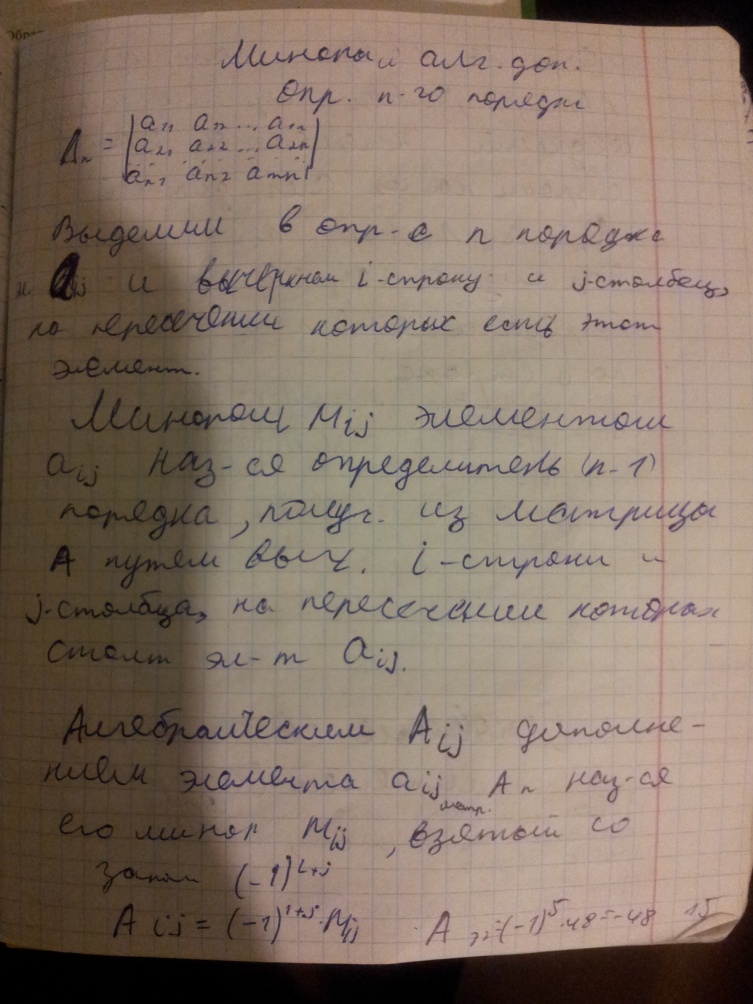 Минор и алг. доп.
опр. n-го порядка
Aₙ = |a₁₁ a₁₂ ... a₁ₙ
a₂₁ a₂₂ ... a₂ₙ
aₙ₁ aₙ₂ aₙₙ|
Выделим в опр-е n порядка
aij и вычеркнем i-строку и j-столбец,
на пересечении которых есть этот
элемент.
Минором Mij элементом
aij наз-ся определитель (n-1)
порядка, получ. из матрицы
A путем выч. i-строки и
j-столбца, на пересечении которых
стоит эл-т aij.
Алгебраическим Aij дополне-
нием элемента aij матр. Aₙ наз-ся
его минор Mij, взятый со
знаком (-1)^i+j
A ij = (-1)^i+j · Mij A =(-1)^5·48=-48